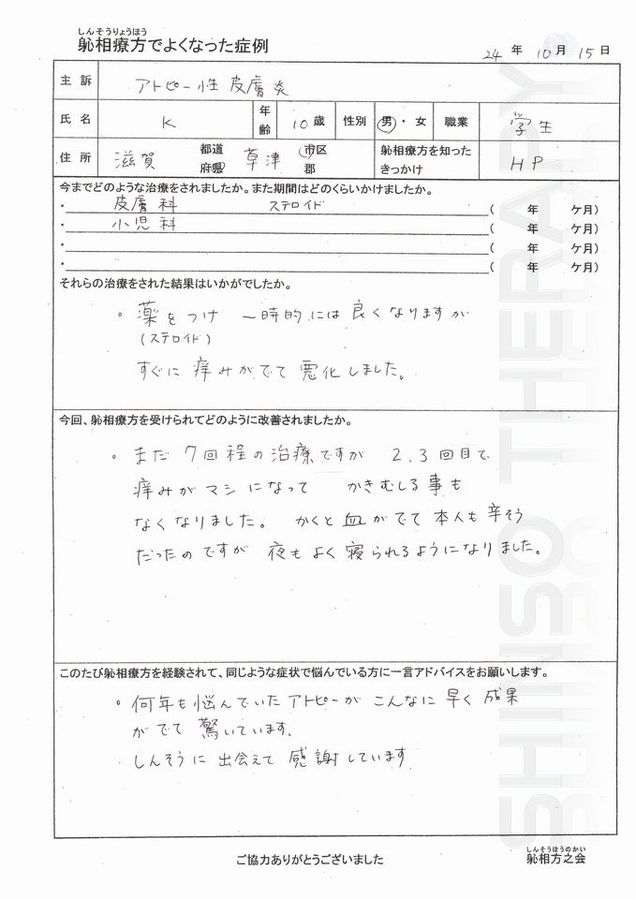 しんそうりょうほう
躰相療方でよくなった症例
24 年 10 月 15 日
主 訴 アトピー性 皮膚炎
氏 名 K 年齢 10 歳 性別 男・女 職業 学生
住 所 滋賀 都道府県 草津 市区郡 躰相療方を知ったきっかけ HP
今までどのような治療をされましたか。また期間はどのくらいかけましたか。
・ 皮膚科 ステロイド ( 年 ケ月)
・ 小児科 ( 年 ケ月)
・ ( 年 ケ月)
・ ( 年 ケ月)
それらの治療をされた結果はいかがでしたか。
。薬をつけ 一時的には良くなりますが
(ステロイド)
すぐに痒みがでて悪化しました。
今回、躰相療方を受けられてどのように改善されましたか。
。まだ7回程の治療ですが 2.3回目で
痒みがマシになって かきむしる事も
なくなりました。 かくと血がでて本人も辛そう
だったのですが 夜もよく寝られるようになりました。
このたび躰相療方を経験されて、同じような症状で悩んでいる方に一言アドバイスをお願いします。
。何年も悩んでいたアトピーがこんなに早く成果
がでて驚いています。
しんそうに出会えて感謝しています
SHINSO THERAPY
ご協力ありがとうございました
しんそうほうのかい
躰相方之会